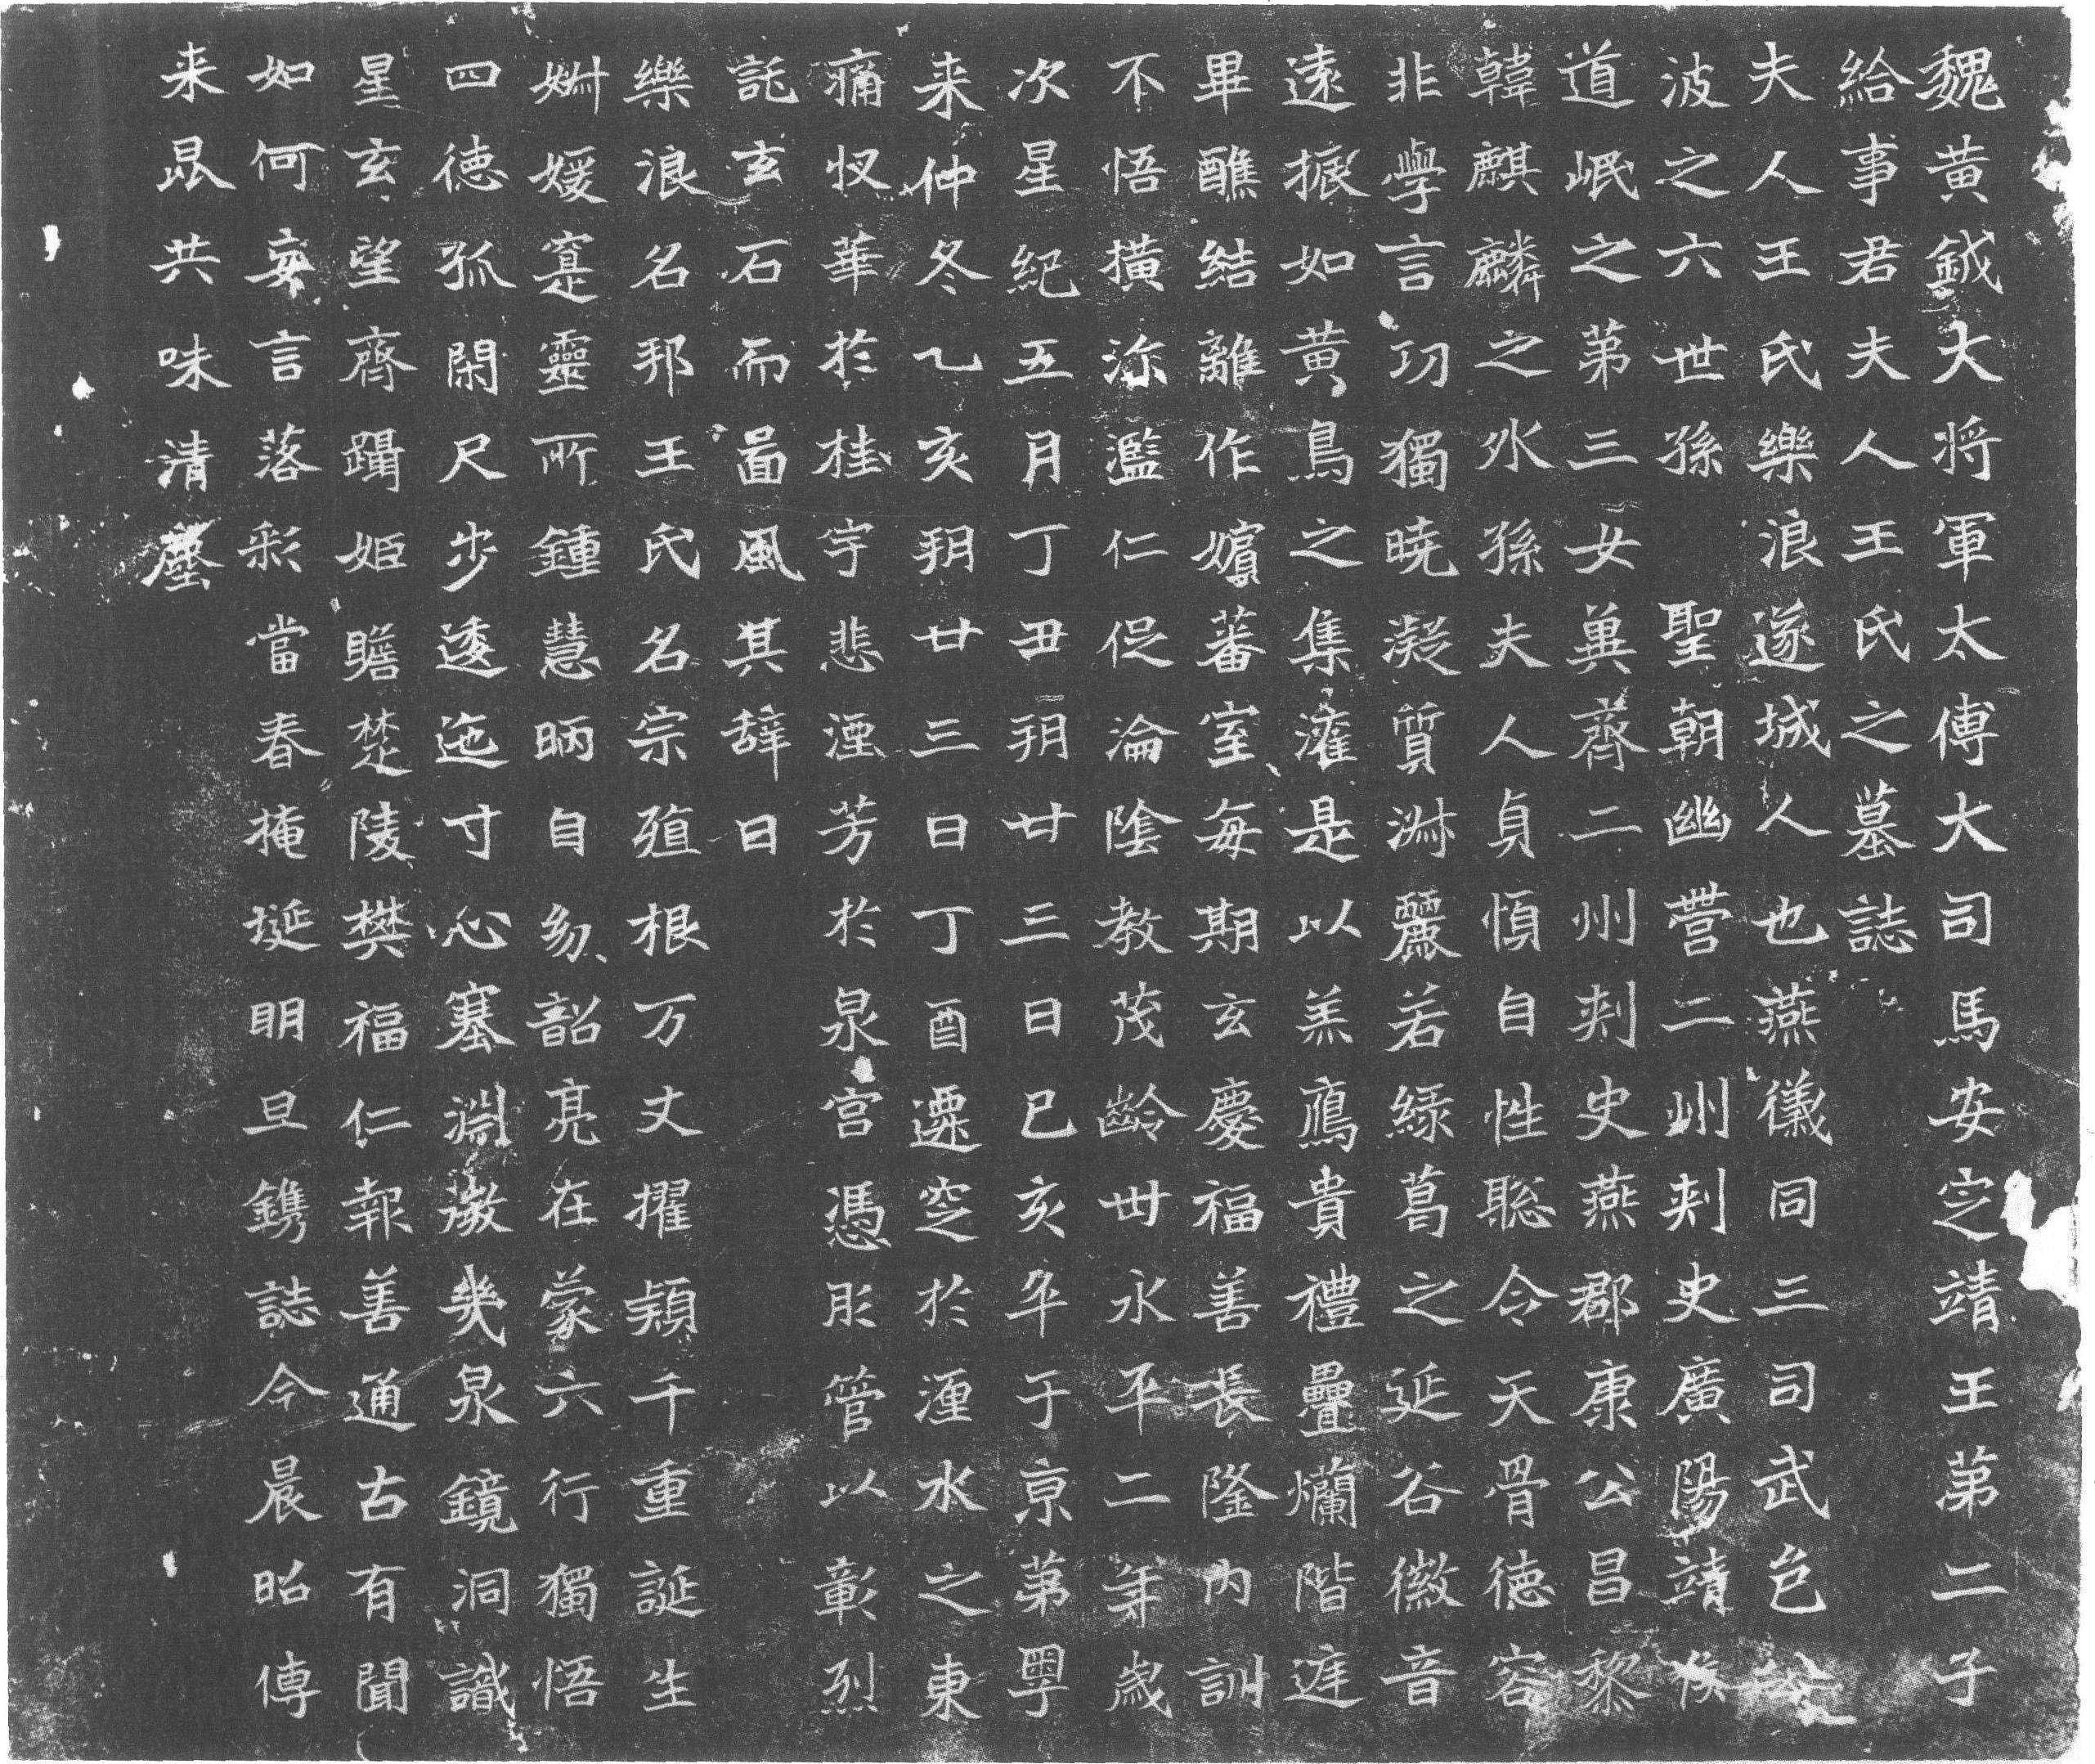 魏黃鉞大將軍太傅大司馬安定靖王第二子
給事君夫人王氏之墓誌
夫人王氏樂浪遂城人也燕儀同三司武邑公
波之六世孫聖朝幽營二州刾史廣陽靖侯
道岷之第三女冀齊二州刾史燕郡康公昌黎
韓麒麟之外孫夫人貞慎自性聡令天骨徳容
非學言功獨曉凝質淋麗若綠葛之延谷徽音
遠振如黃鳥之集灌是以羔鴈貴禮疊爛階庭
畢醮結離作嬪蕃室每期玄慶福善長隆內訓
不悟潢沵濫仁促淪陰教茂齡世永平二年歲
次星紀五月丁丑朔廿三日己亥卒于京第粤
来仲冬乙亥朔廿三日丁酉遷窆於瀍水之東
痛收華於桂宇悲湮芳於泉宮憑彤管以彰烈
託玄石而啚風其辞曰
樂浪名邦王氏名宗殖根万丈擢穎千重誕生
姉媛寔靈所鍾慧晒自幼韶亮在蒙六行獨悟
四徳孤閑尺步透迤寸心塞淵澂幾泉鏡洞識
星玄望齊躡姬瞻楚陵樊福仁報善通古有聞
如何妄言落彩當春掩埏明旦鐫誌今晨昭傳
来昆共味清塵